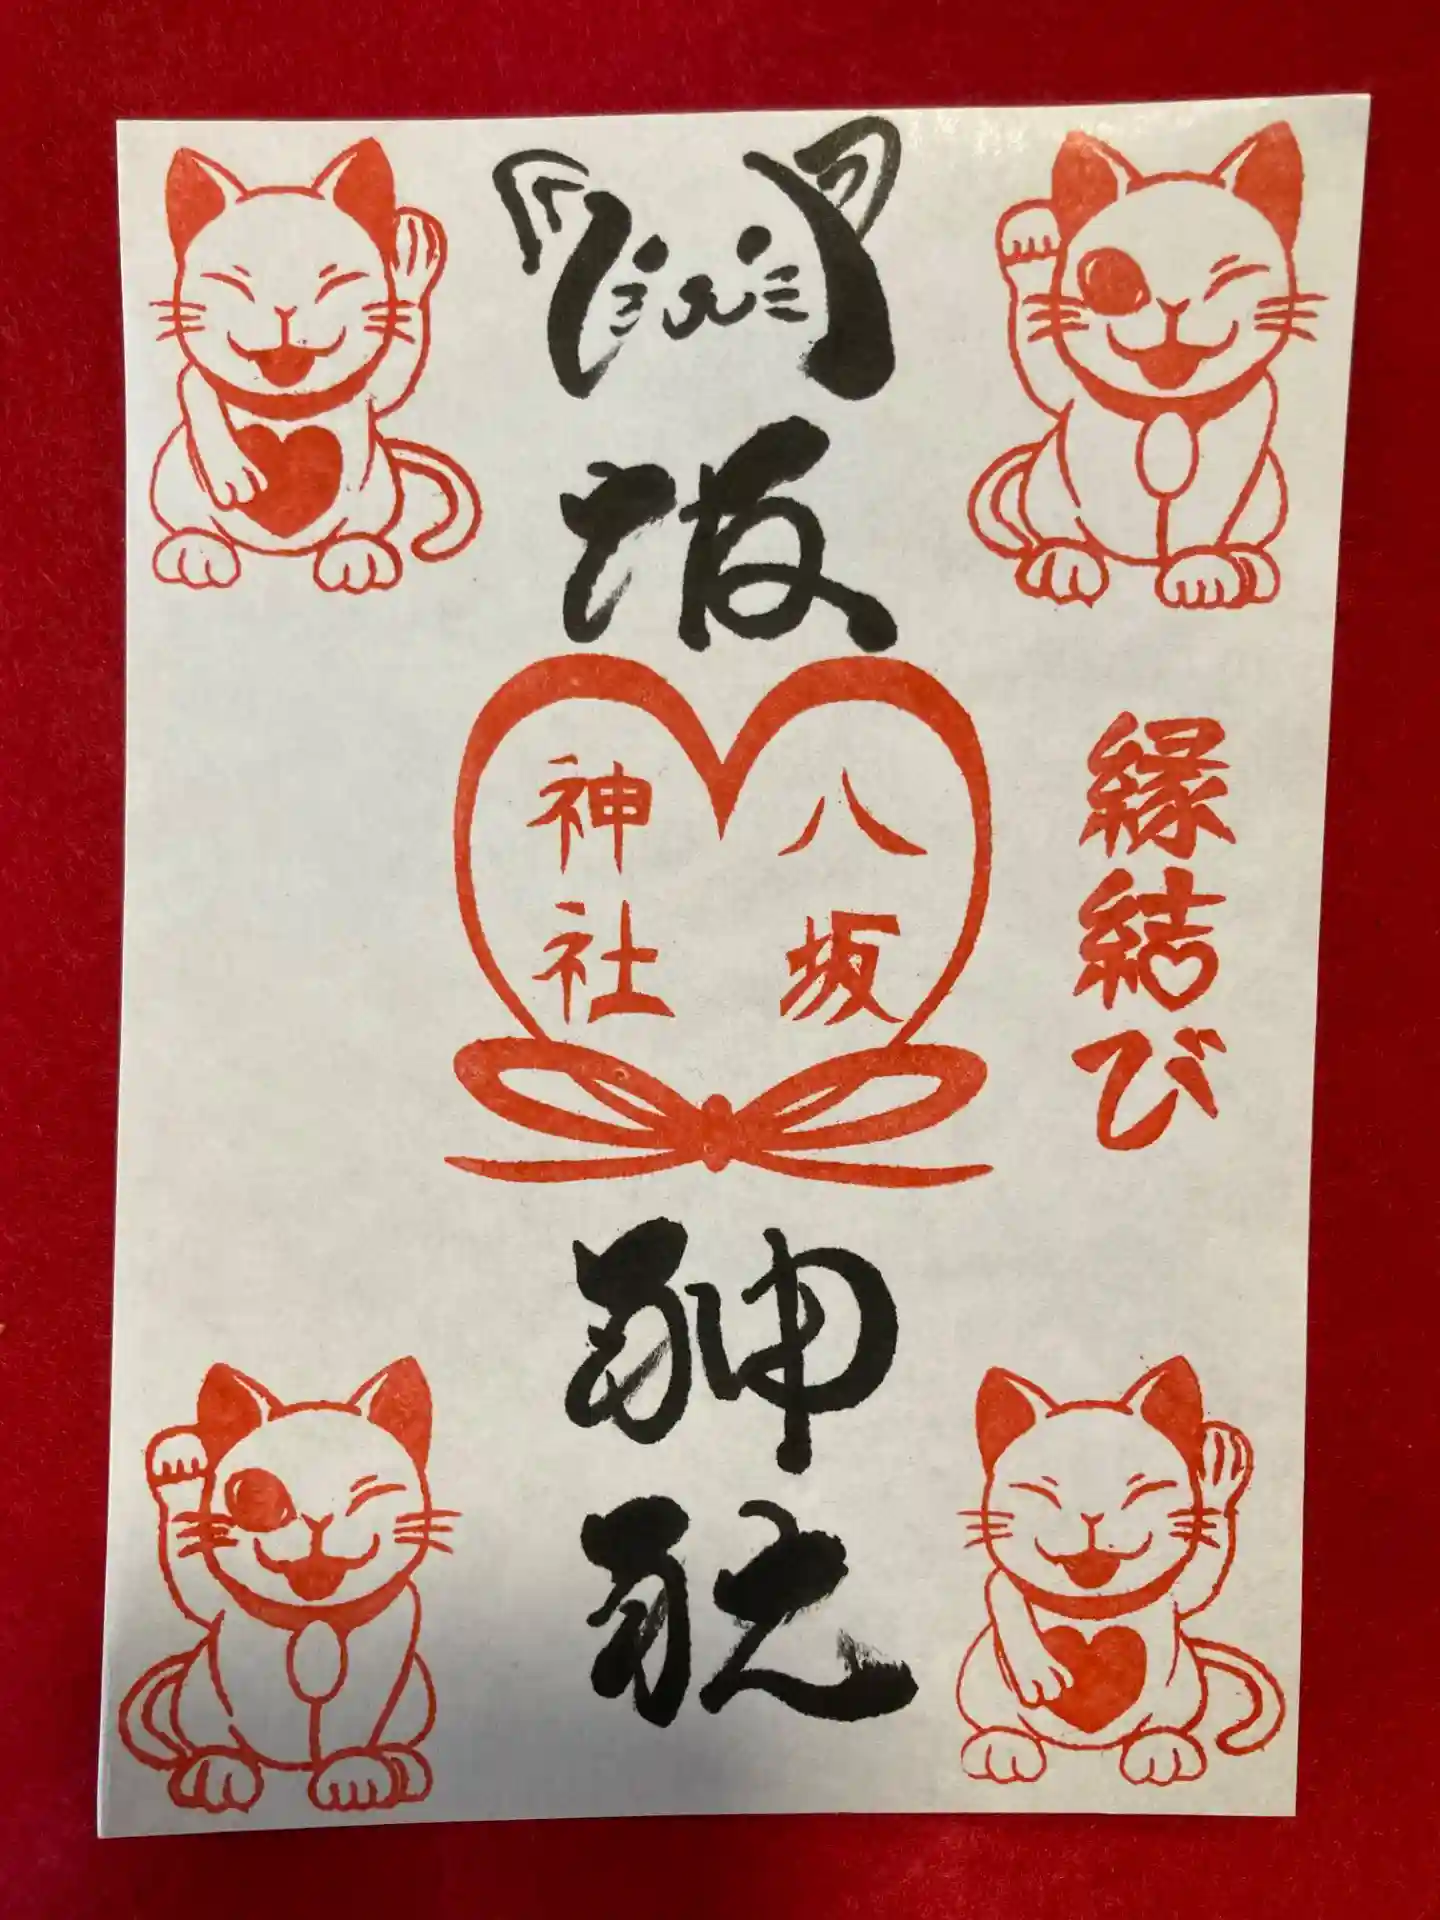 縁結び
八坂
神社
八坂神社